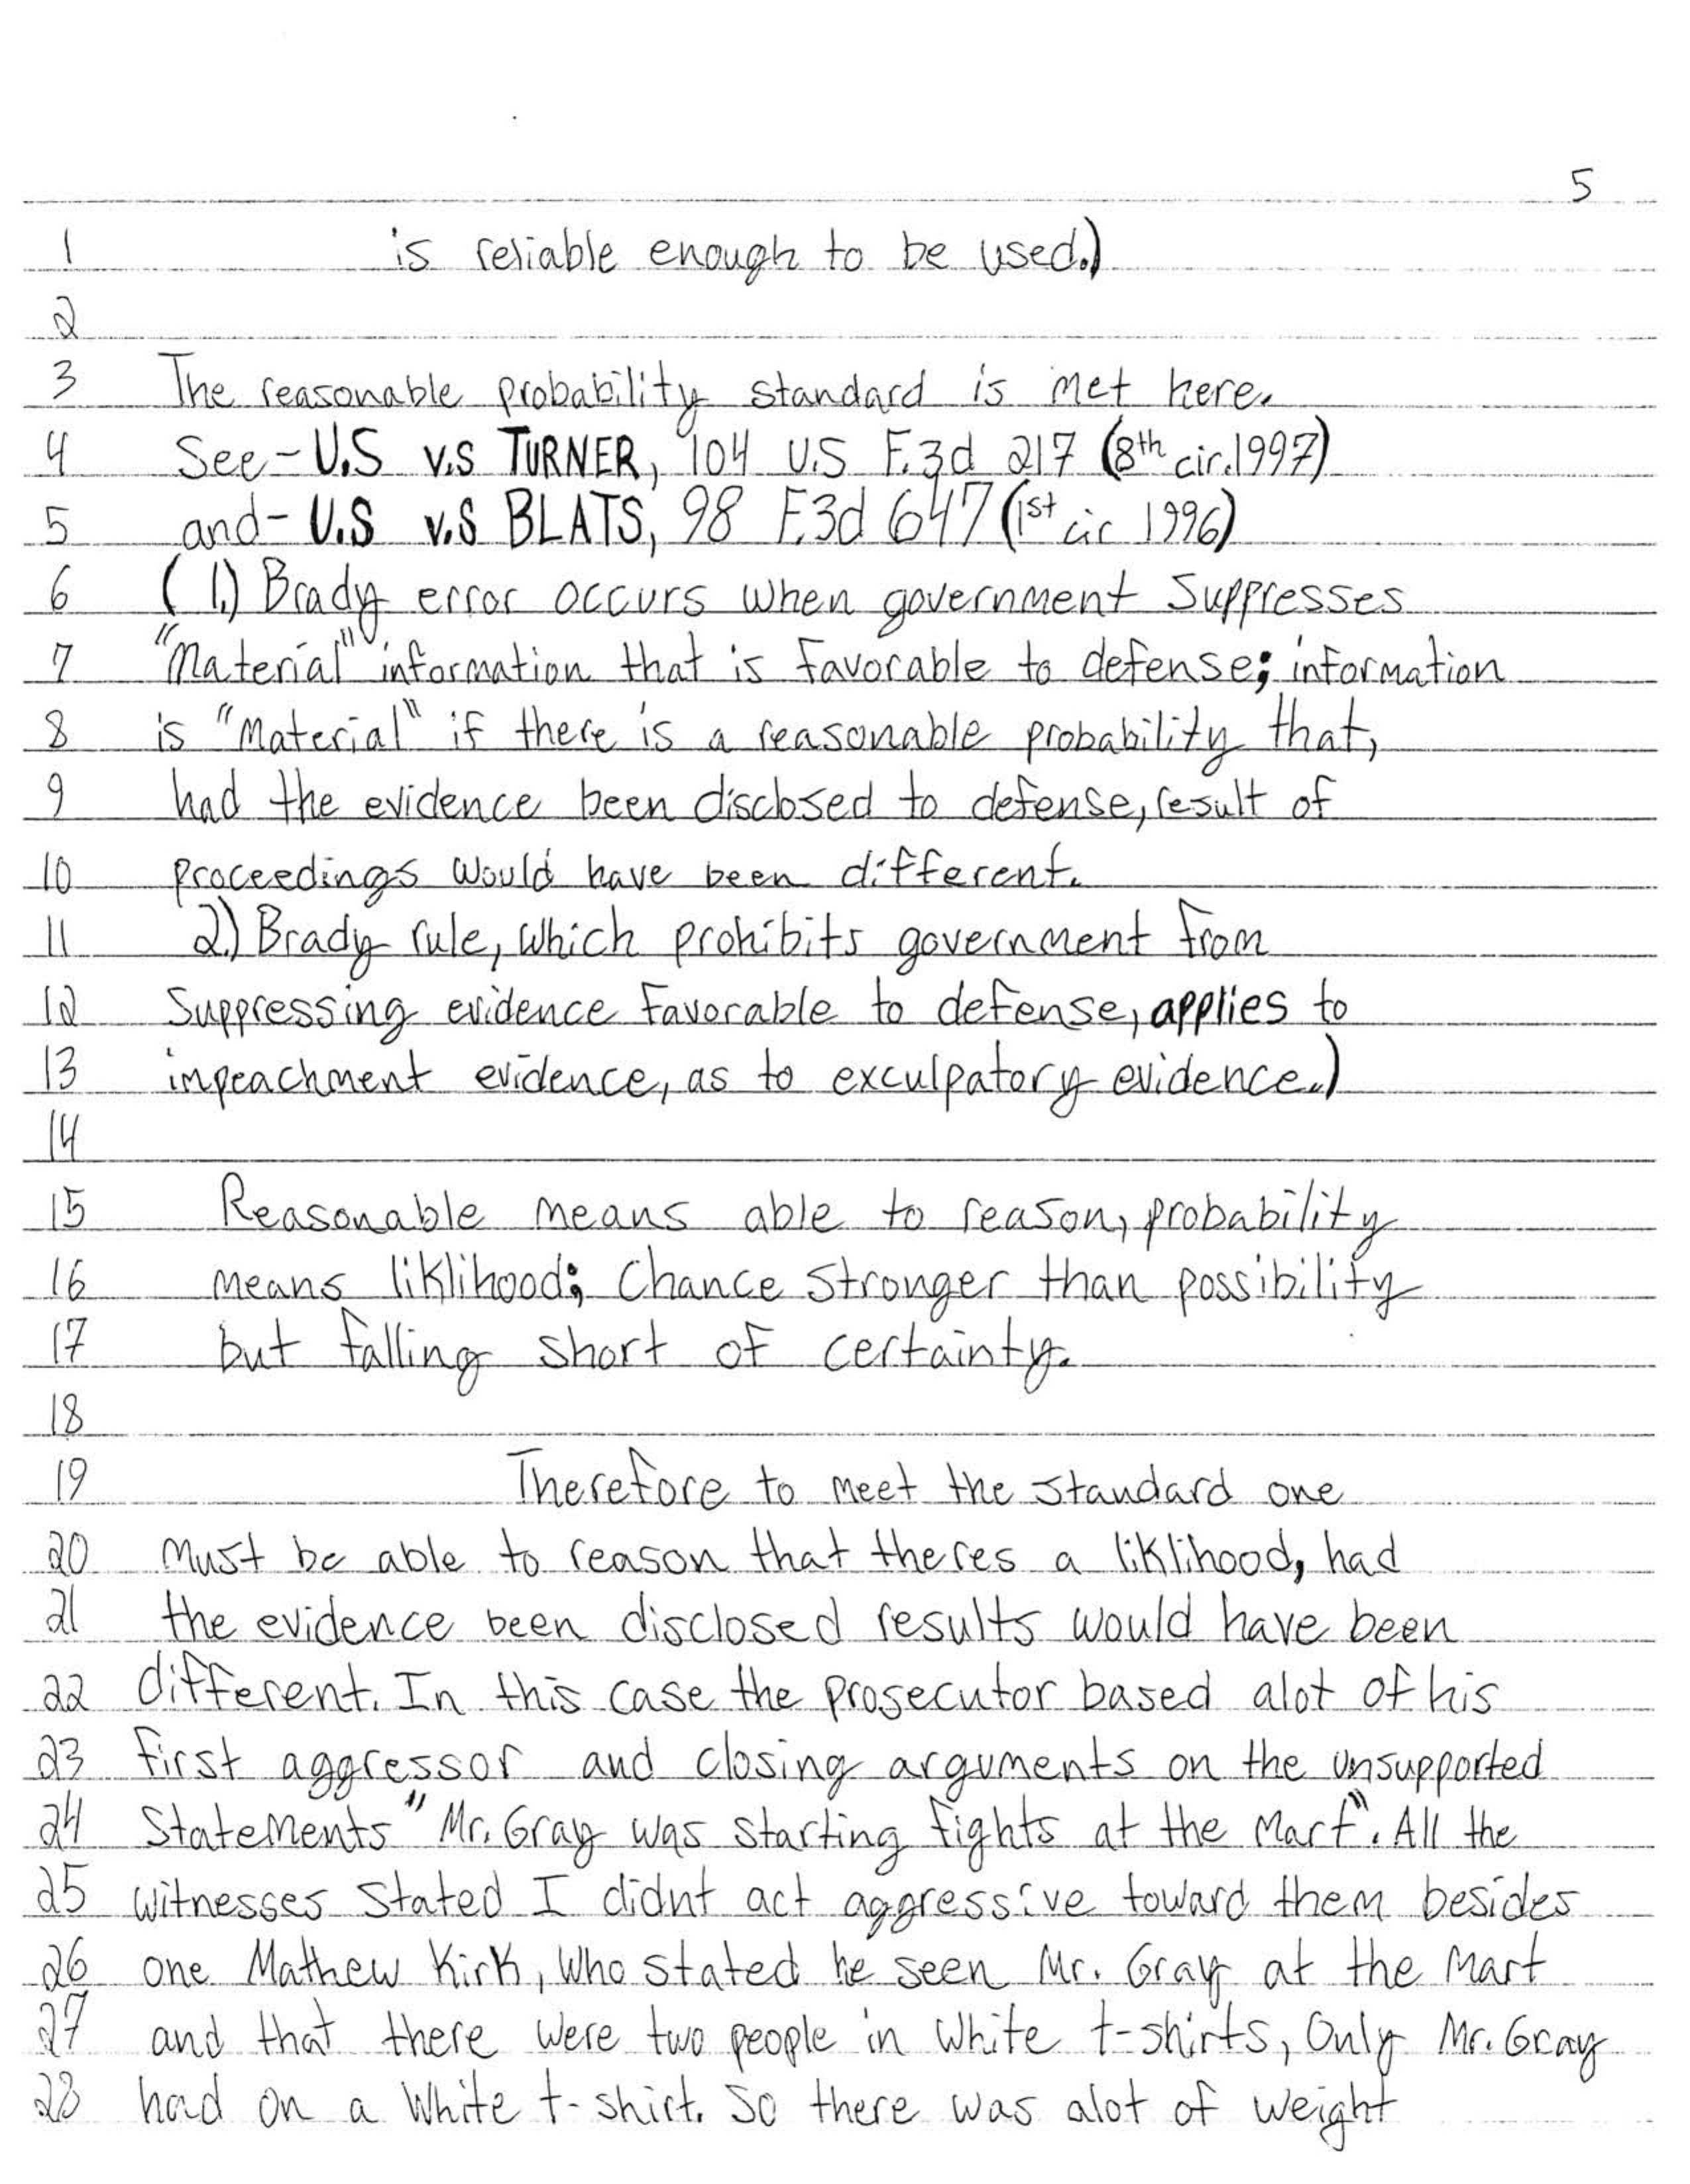 5
1 is reliable enough to be used.)
2
3 The reasonable probability standard is met here.
4 See- U.S v.s TURNER, 104 U.S F.3d 217 (8th cir.1997)
5 and- U.S v.s BLATS, 98 F.3d 647 (1st cir 1996)
6 ( 1.) Brady error occurs when government suppresses
7 "Material" information that is favorable to defense; information
8 is "Material" if there is a reasonable probability that,
9 had the evidence been disclosed to defense, result of
10 proceedings would have been different.
11 2.) Brady rule, which prohibits government from
12 suppressing evidence favorable to defense, applies to
13 impeachment evidence, as to exculpatory evidence.)
14
15 Reasonable means able to reason, probability
16 means liklihood; Chance stronger than possibility
17 but falling short of certainty.
18
19 Therefore to meet the standard one
20 must be able to reason that theres a liklihood, had
21 the evidence been disclosed results would have been
22 different. In this case the prosecutor based alot of his
23 first aggressor and closing arguments on the unsupported
24 statements "Mr. Gray was starting fights at the Mart". All the
25 witnesses stated I didnt act aggressive toward them besides
26 one Mathew Kirk, who stated he seen Mr. Gray at the Mart
27 and that there were two people in white t-shirts, Only Mr. Gray
28 had on a white t-shirt. So there was alot of weight